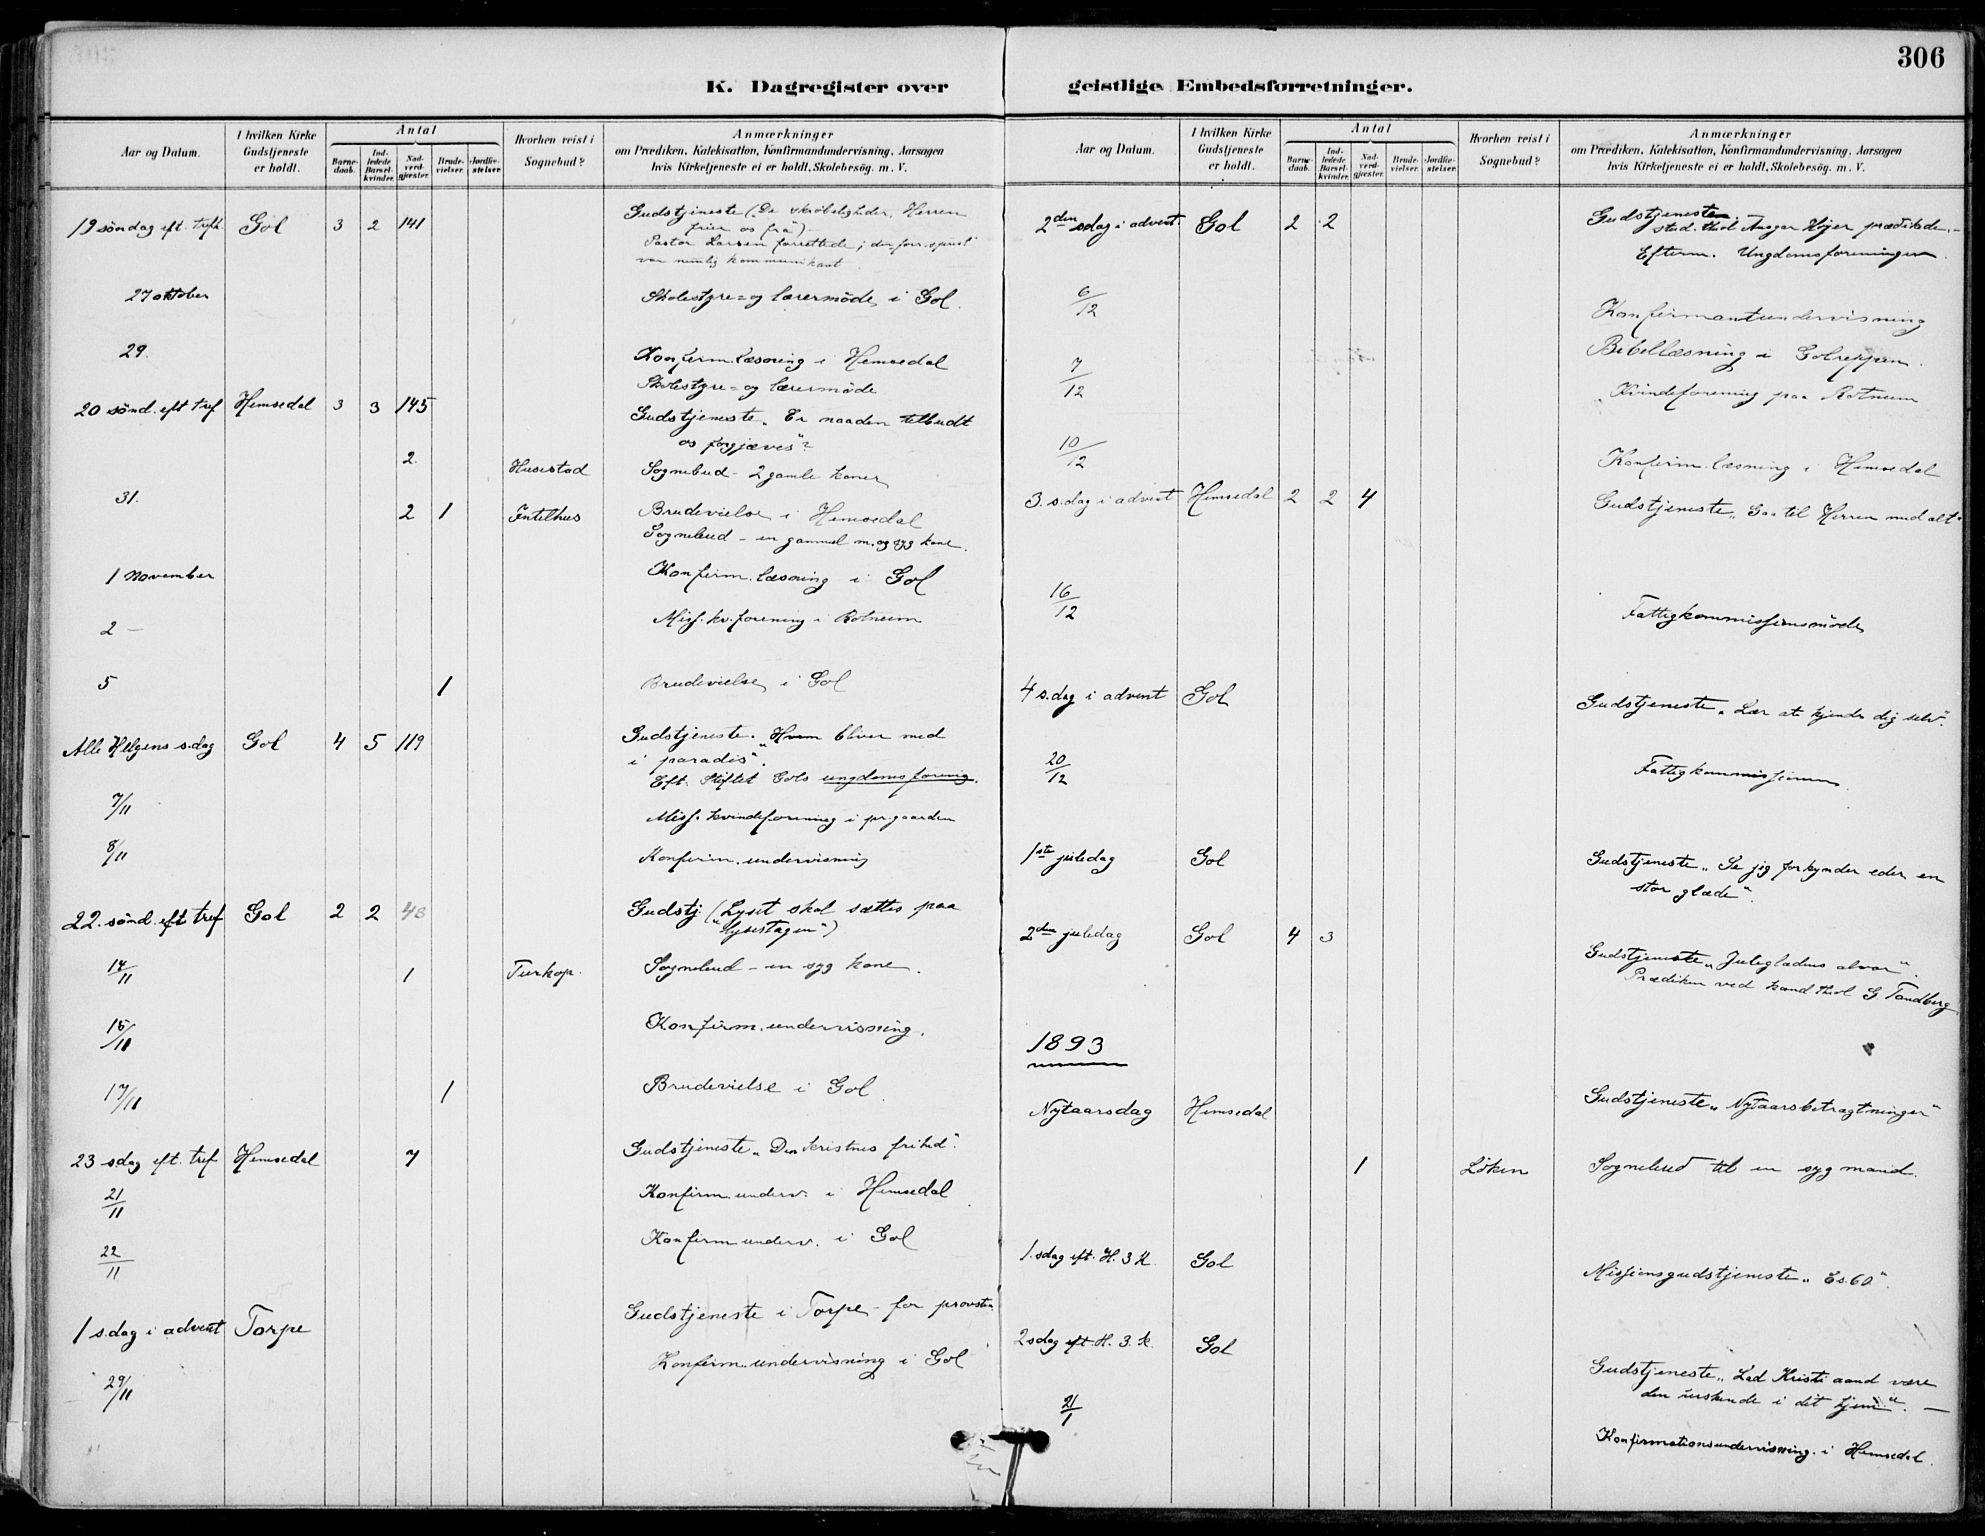 306
K. Dagregister over geistlige Embedsforretninger.
Aar og Datum.
I hvilken Kirke Gudstjeneste er holdt.
Antal
Barne-daab.
Ind-ledede Barsel-kvinder.
Nad-verd-gjæster.
Brude-vielser.
Jordfæ-stelser.
Hvorhen reist i Sognebud?
Anmærkninger
om Prædiken, Katekisation, Konfirmandundervisning, Aarsagen
hvis Kirketjeneste ei er holdt, Skolebesøg. m. V.
19 søndag eft. trefh. Gol 3 2 141 Gudstjeneste („De skrøbeligheder, Herren
frier os fra“)
Pastor Larsen forrettede; den forr. sprest
var nemlig kommunikant
27 oktober Skolestyre= og lærermøde i Gol.
29. Konfirm. læsning i Hemsedal
Skolestyre= og lærermøde
20 sønd. eft tref Hemsedal 3 3 145 Gudstjeneste „Er naaden tilbudt
os forgjæves“?
2. Husestad Sognebud - 2 gamle koner
31. 2 1 Brudevielse i Hemsedal
Sognebud - en gammel m. og syg kone.
1 November Konfirm. læsning i Gol
2 — Miss. kv. forening i Rotneim
5 1 Brudevielse i Gol
Alle Helgens s.dag Gol 4 5 119 Gudstjeneste. „Hvem bliver med
i paradis“.
Eft. stiftet Gols ungdomsforenig.
7/11 Miss. kvindeforening i pr.gaarden
8/11 Konfirm. undervisning
22. sønd. eft tref Gol 2 2 48 Gudstj („Lyset skal sættes paa
lysestagen“)
14/11 1 Turkop. Sognebud - en syg kone.
15/11 Konfirm. undervisning.
17/11 1 Brudevielse i Gol.
23 sdag eft. tref Hemsedal 7 Gudstjeneste „Den kristnes frihed“.
21/11 Konfirm. underv. i Hemsedal
22/11 Konfirm underv. i Gol
1 s.dag i advent Torpe Gudstjeneste i Torpe - for provsten
29/11 Konfirm. undervisning i Gol
Aar og Datum.
I hvilken Kirke Gudstjeneste er holdt.
Antal
Barne-daab.
Ind-ledede Barsel-kvinder.
Nad-verd-gjæster.
Brude-vielser.
Jordfæ-stelser.
Hvorhen reist i Sognebud?
Anmærkninger
om Prædiken, Katekisation, Konfirmandundervisning, Aarsagen
hvis Kirketjeneste ei er holdt, Skolebesøg. m. V.
2den sdag i advent. Gol 2 2 Gudstjeneste,
stud. theol Ansgar Høyer prædikede. -
Efterm. Ungdomsforeningen.
6/12 Konfirmantundervisning
7/12 Bibellæsning i Golreppen.
„Kvindeforening paa Rotneim
10/12 Konfirm. læsning i Hemsedal
3. s.dag i advent Hemsedal 2 2 4 Gudstjeneste „Gaa til Herren med alt“
16/12 Fattigkommissionsmøde
4 s.dag i advent Gol Gudstjeneste „Lær at kjende dig selv“.
20/12 Fattigkommissionen
1ste juledag Gol Gudstjeneste „Se jeg forkynder eder en
stor glæde“.
2den juledag Gol 4 3 Gudstjeneste „Juleglædens alvor“.
Prædiken ved kand theol G Tandberg
1893
Nytaarsdag Hemsedal Gudstjeneste „Nytaarsbetragtninger“
1 Løken Sognebud til en syg mand.
1. sdag eft. H. 3 K. Gol Missionsgudstjeneste „Es. 60“.
2 sdag eft H. 3. k. Gol Gudstjeneste „Lad Kristi aand være
den i dit hjem“. —
21/1 Konfirmationsundervisning. i Hemsedal.